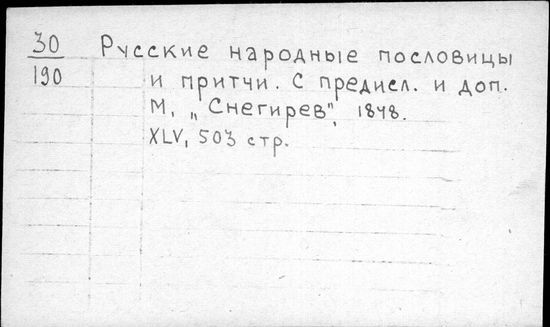 30 Русские народные пословицы
190 и притчи. С предисл. и доп.
М, „Снегирев", 1848.
XLV, 503 стр.